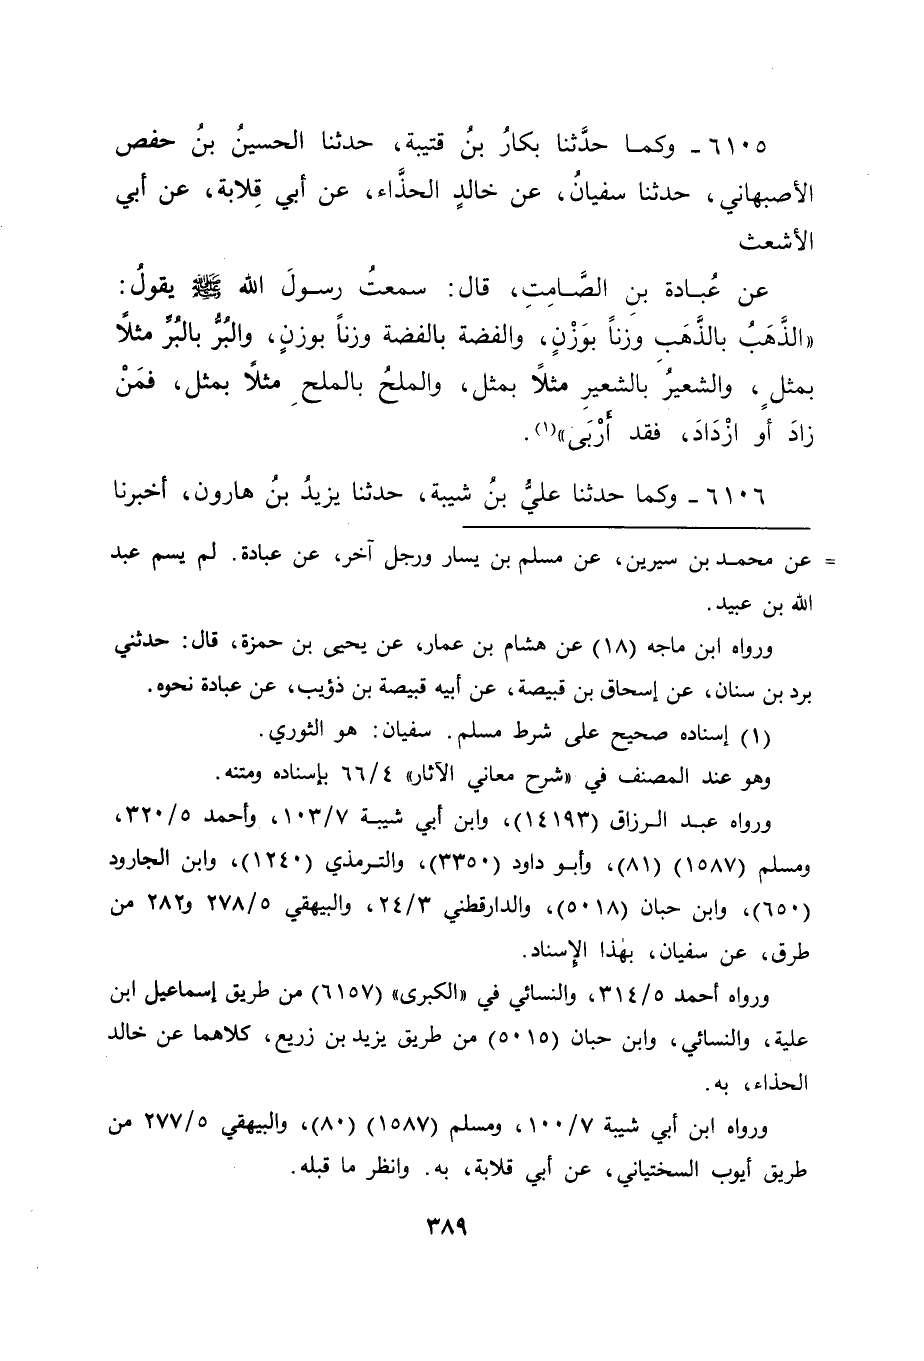 ٦١٠٥ـ وكمـا حدَّثنا بكارُ بنُ قتيبة، حدثنا الحسينُ بنُ حفص
الأصبهاني، حدثنا سفيانُ، عن خالدٍ الحذَّاء، عن أبي قِلابة، عن أبي
الأشعث
عن عُبـادة بنِ الصَّـامِتِ، قال: سمعتُ رسـولَ الله ﷺ يقولُ:
«الذَّهَبُ بالذَّهَبِ وزناً بوَزْنٍ، والفضة بالفضة وزناً بوزنٍ، والبُرُّ بالبُرِّ مثلًا
بمثلٍ، والشعيرُ بالشعيرِ مثلًا بمثل، والملحُ بالملحِ مثلًا بمثل، فمَنْ
زادَ أو ازْدَادَ، فقد أَرْبَى»(١).
٦١٠٦ـ وكما حدثنا عليُّ بنُ شيبة، حدثنا يزيدُ بنُ هارون، أخبرنا
= عن محمـد بن سيرين، عن مسلم بن يسار ورجل آخر، عن عبادة. لم يسم عبد
الله بن عبيد.
ورواه ابن ماجه (١٨) عن هشام بن عمار، عن يحيى بن حمزة، قال: حدثني
برد بن سنان، عن إسحاق بن قبيصة، عن أبيه قبيصة بن ذؤيب، عن عبادة نحوه.
(١) إسناده صحيح على شرط مسلم. سفيان: هو الثوري.
وهو عند المصنف في «شرح معاني الآثار» ٦٦/٤ بإسناده ومتنه.
ورواه عبـد الـرزاق (١٤١٩٣)، وابن أبي شيبـة ١٠٣/٧، وأحمد ٣٢٠/٥،
ومسلم (١٥٨٧) (٨١)، وأبـو داود (٣٣٥٠)، والتـرمذي (١٢٤٠)، وابن الجارود
(٦٥٠)، وابن حبان (٥٠١٨)، والدارقطني ٢٤/٣، والبيهقي ٢٧٨/٥ و٢٨٢ من
طرق، عن سفيان، بهٰذا الإسناد.
ورواه أحمد ٣١٤/٥، والنسائي في «الكبرى» (٦١٥٧) من طريق إسماعيل ابن
علية، والنسائي، وابن حبان (٥٠١٥) من طريق يزيد بن زريع، كلاهما عن خالد
الحذاء، به.
ورواه ابن أبي شيبة ١٠٠/٧، ومسلم (١٥٨٧) (٨٠)، والبيهقي ٢٧٧/٥ من
طريق أيوب السختياني، عن أبي قلابة، به. وانظر ما قبله.
٣٨٩